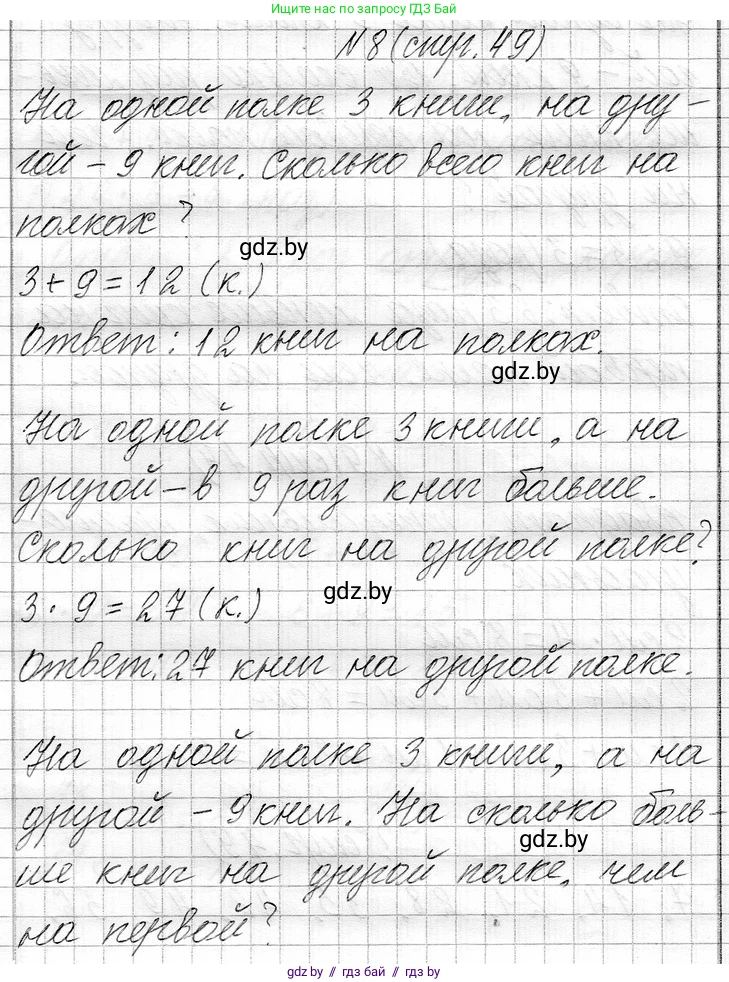 Ищите нас в интернете по запросу ГДЗ БАЙ
№8 (стр. 49)
На одной полке 3 книги, на дру-
гой - 9 книг. Сколько всего книг на
полках?
gdz.by
3 + 9 = 12 (к.)
Ответ: 12 книг на полках.
gdz.by
На одной полке 3 книги, а на
другой - в 9 раз книг больше.
Сколько книг на другой полке?
gdz.by
3 · 9 = 27 (к.)
Ответ: 27 книг на другой полке.
На одной полке 3 книги, а на
другой - 9 книг. На сколько боль-
gdz.by
ше книг на другой полке, чем
на первой?
gdz.by // гдз бай // gdz.by